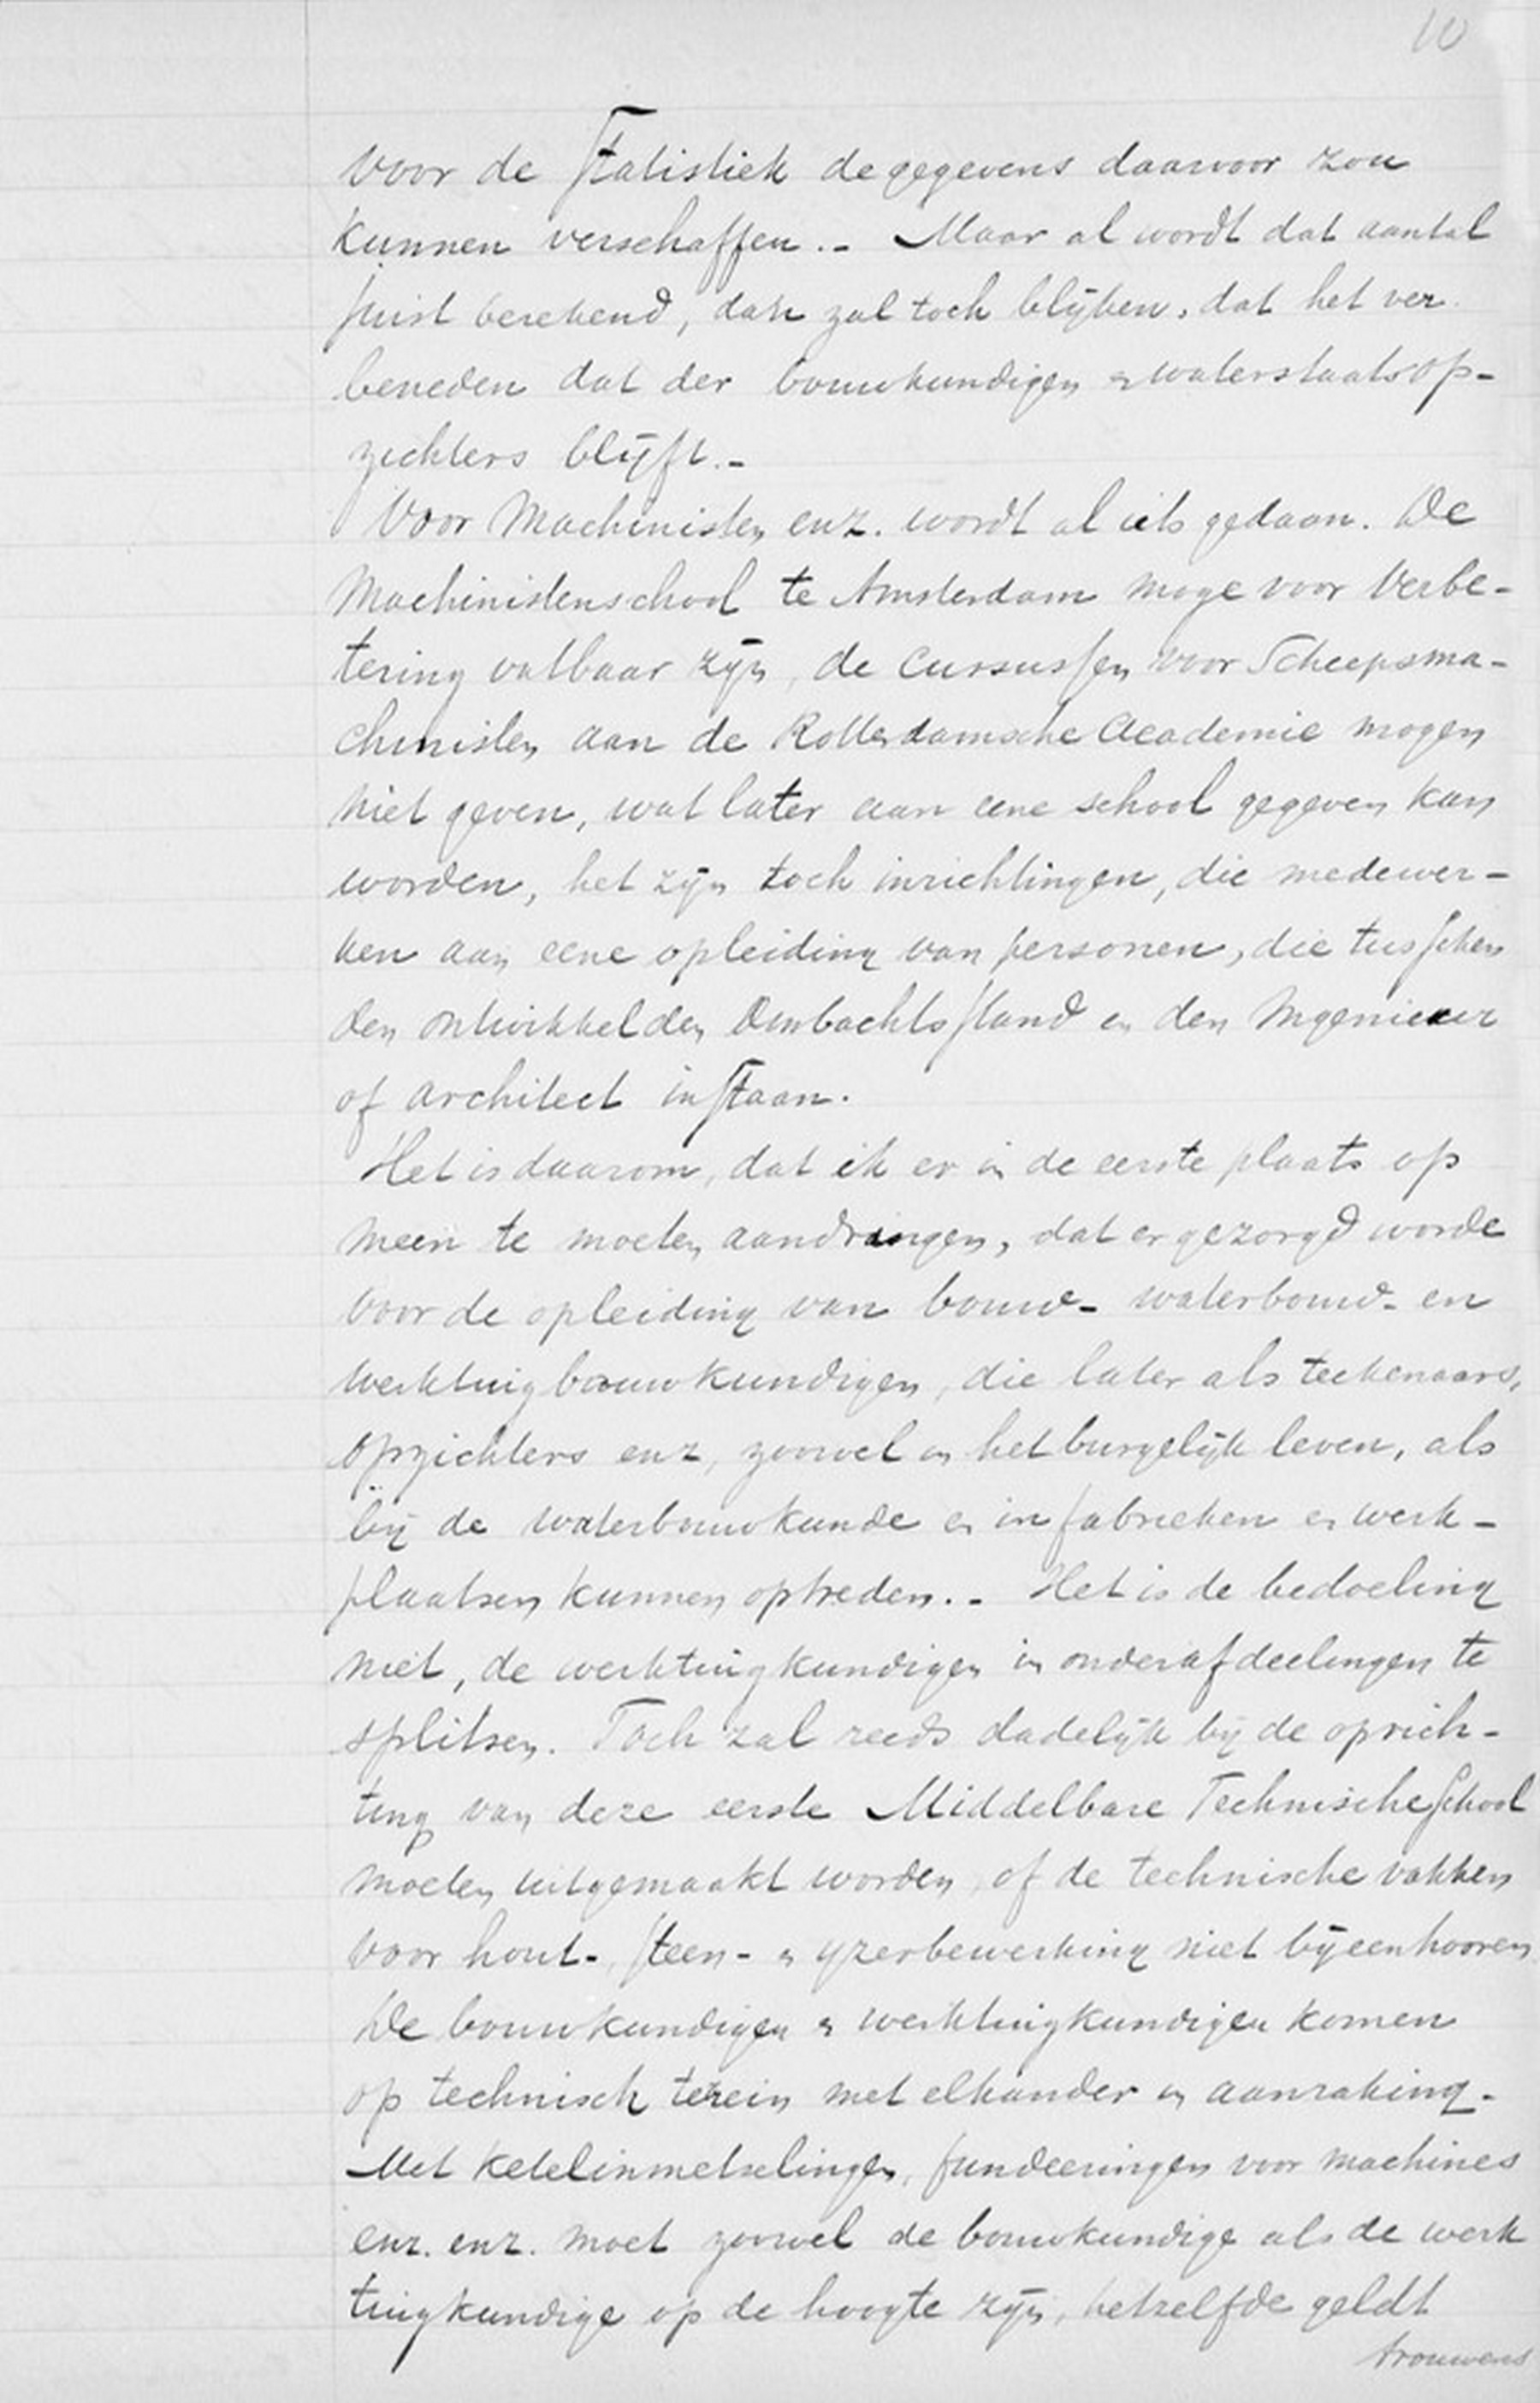 10
voor de Statistiek de gegevens daarvoor zou
kunnen verschaffen.- Maar al wordt dat aantal
juist berekend, dan zal toch blijken, dat het ver
beneden dat der bouwkundigen en waterstaatsop-
zichters blijft.-
Voor Machinisten enz. wordt al iets gedaan. De
Machinistenschool te Amsterdam moge voor verbe-
tering vatbaar zijn, de cursussen voor Scheepsma-
chinisten aan de Rotterdamsche Academie mogen
niet geven, wat later aan eene school gegeven kan
worden, het zijn toch inrichtingen, die medewer-
ken aan eene opleiding van personen, die tusschen
den ontwikkelden Ambachtsstand en den Ingenieur
of architect instaan.
Het is daarom, dat ik er in de eerste plaats op
meen te moeten aandringen, dat er gezorgd worde
voor de opleiding van bouw- waterbouw- en
werktuigbouwkundigen, die later als teekenaars,
opzichters enz, zoowel in het burgelijk leven, als
bij de waterbouwkunde en in fabrieken en werk-
plaatsen kunnen optreden.- Het is de bedoeling
niet, de werktuigkundigen in onderafdeelingen te
splitsen. Toch zal reeds dadelijk bij de oprich-
ting van deze eerste Middelbare Technische School
moeten uitgemaakt worden, of de technische vakken
voor hout-, steen- en yzerbewerking niet bijeenhooren
De bouwkundigen en werktuigkundigen komen
op technisch terein met elkander in aanraking.
Met ketelinmetselingen, fundeeringen voor machines
enz. enz. moet zoowel de bouwkundige als de werk
tuigkundige op de hoogte zijn, hetzelfde geldt
trouwens